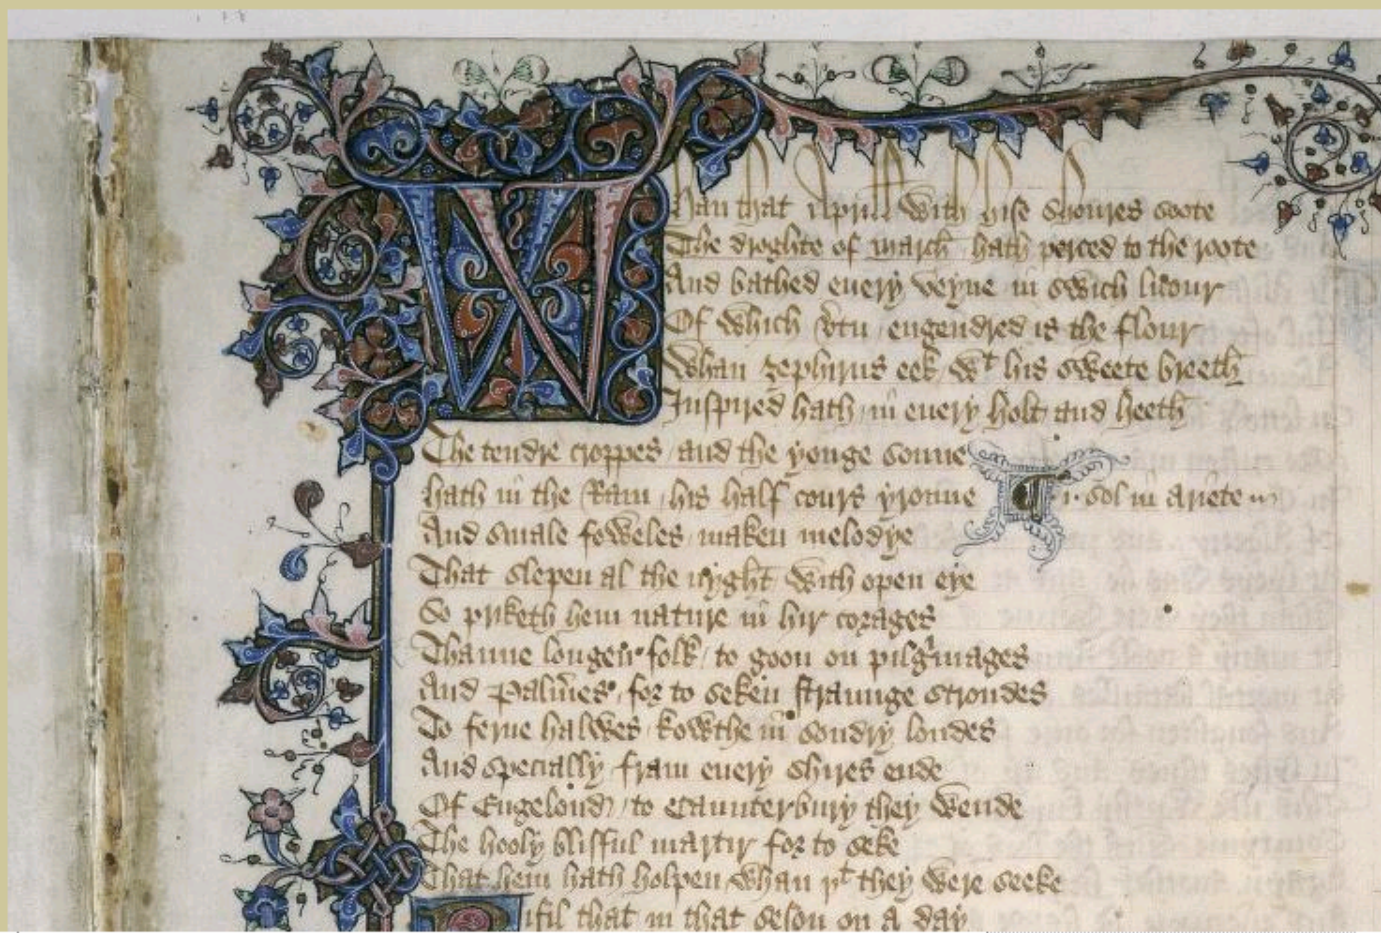 Whan that Aprill with hise shoures soote
The droghte of march hath perced to the roote
And bathed euery veyne in swich licour
Of which vertu engendred is the flour
Whan zephirus eek wt his sweete breeth
Inspired hath in euery holt and heeth
The tendre croppes and the yonge sonne
hath in the Ram his half cours yronne .i. sol in ariete
And smale foweles maken melodye
That slepen al the nyght with open eye
So priketh hem nature in hir corages
Thanne longen folk to goon on pilgrimages
And Palmeres for to seken straunge strondes
To ferne halwes kowthe in sondry londes
And specially fram euery shires ende
Of Engelond to Caunterbury they wende
The hooly blisful martir for to seke
That hem hath holpen whan þt they were seeke
Bifil that in that seson on a day